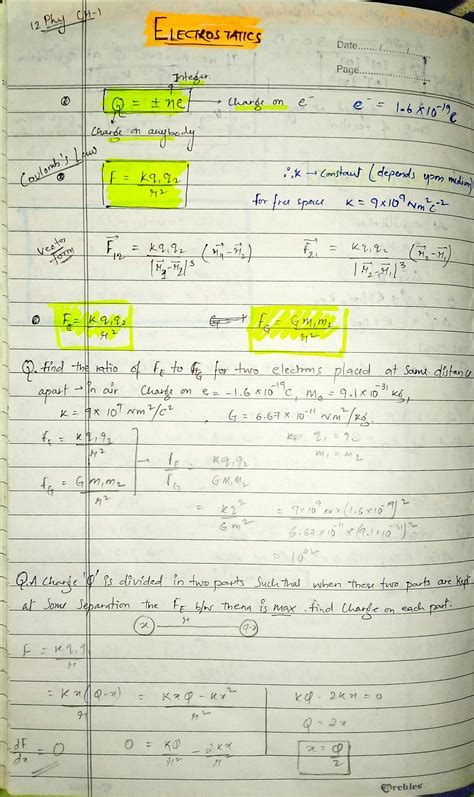 12 Phy CH-1
ELECTROSTATICS
Date
Page
Integer
Q = ± ne → Charge on e⁻ e⁻ = 1.6 × 10⁻¹⁹ c
Charge on anybody
Coulomb's Law
F = kq₁q₂/r² ∴ K → Constant (depends upon medium)
for free space K = 9×10⁹ Nm²c⁻²
Vector form F⃗₁₂ = kq₁q₂/|r⃗₁-r⃗₂|³ (r⃗₁-r⃗₂) F⃗₂₁ = kq₁q₂/|r⃗₂-r⃗₁|³ (r⃗₂-r⃗₁)
F_E = Kq₁q₂/r² F_G = Gm₁m₂/r²
Q. find the ratio of F_E to F_G for two electrons placed at same distance
apart in air Charge on e = -1.6 × 10⁻¹⁹C, m_e = 9.1×10⁻³¹ kg,
K = 9×10⁹ Nm²/C² G = 6.67 × 10⁻¹¹ Nm²/kg
f_E = kq₁q₂/r² q₁ = q₂
m₁ = m₂
f_G = Gm₁m₂/r² → f_E/f_G = kq₁q₂/Gm₁m₂
= kq²/Gm² = 9×10⁹ × (1.6×10⁻¹⁹)²/6.67×10⁻¹¹×(9.1×10⁻³¹)²
Q. A Charge 'Q' is divided in two parts such that when these two parts are kept
at some separation the F_E b/w them is max. find Charge on each part.
x r Q-x
= Kx(Q-x)/r = KxQ-Kx²/r² KQ - 2Kx = 0
Q = 2x
dF/dx = 0 0 = KQ/r² - 2Kx/r² x = Q/2
Archies